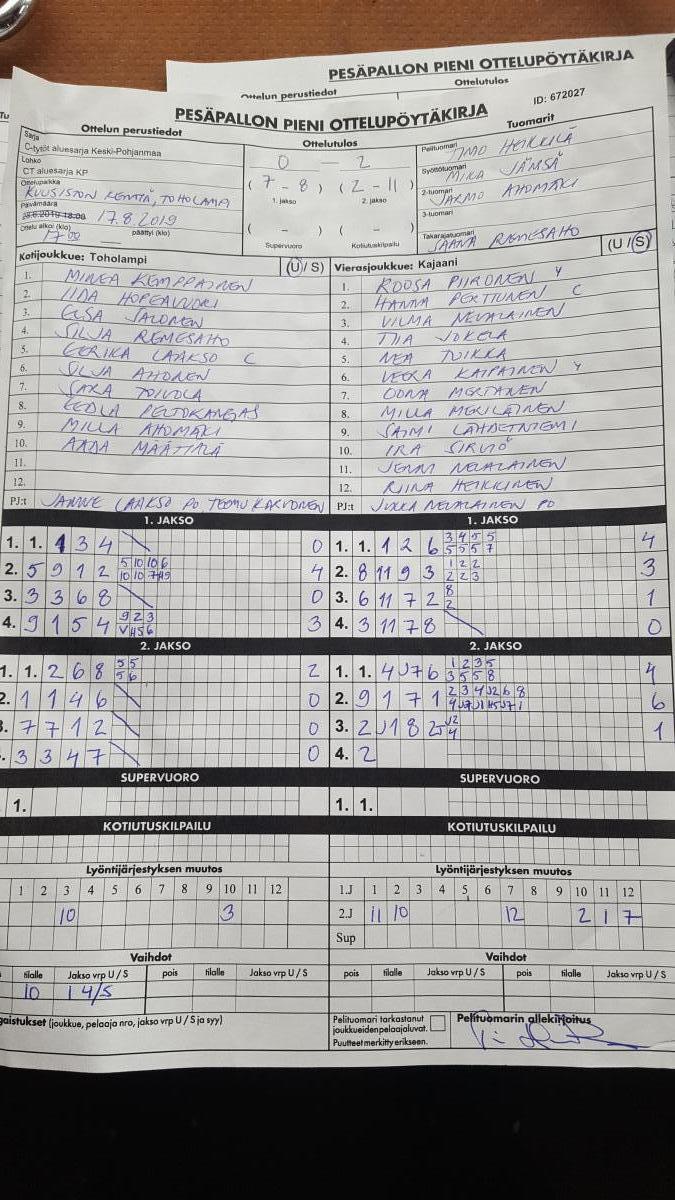 PESÄPALLON PIENI OTTELUPÖYTÄKIRJA
Ottelun perustiedot
Ottelutulos
PESÄPALLON PIENI OTTELUPÖYTÄKIRJA
ID: 672027
Ottelun perustiedot
Ottelutulos
Tuomarit
Sarja
C-tytöt aluesarja Keski-Pohjanmaa
Lohko
CT aluesarja KP
Ottelupaikka
KUUSISTON KENTTÄ, TOHOLAMPI
Päivämäärä
17.8.2019
Ottelu alkoi (klo) 17 00 päättyi (klo)
0 — 2
( 7 - 8 ) ( 2 - 11 )
1. jakso 2. jakso
( - ) ( - )
Supervuoro Kotiutuskilpailu
Pelituomari TIMO HEIKKILÄ
Syöttötuomari MIKA JÄMSÄ
2-tuomari JARMO AHOMÄKI
3-tuomari
Takarajatuomari SAANA REMESAHO
Kotijoukkue: Toholampi (U/S)
1. MINEA KEMPPAINEN
2. IIDA HOPEAVUORI
3. ELSA SALONEN
4. SILJA REMESAHO
5. EERIKA LAAKSO C
6. SILJA AHONEN
7. SARA TOIVOLA
8. EEDLA PELTOKANGAS
9. MILLA AHOMÄKI
10. AADA MÄÄTTÄLÄ
11.
12.
PJ:t JANNE LAAKSO PO TEEMU KARVONEN
Vierasjoukkue: Kajaani (U/S)
1. ROOSA PIIRONEN Y
2. HANNA PERTTUNEN C
3. VILMA NEVALAINEN
4. TIIA JOKELA
5. NEA TUIKKA
6. VEERA KAIPAINEN Y
7. OONA MERTANEN
8. MILLA MERILÄINEN
9. SAIMI LAHDENNIEMI
10. IRA SIRVIÖ
11. JENNI NEVALAINEN
12. RIINA HEIKKINEN
PJ:t JUKKA NEVALAINEN PO
1. JAKSO
1. 1. 1 3 4 0
2. 5 9 1 2 4
3. 3 3 6 8 0
4. 9 1 5 4 3
2. JAKSO
1. 1. 2 6 8 55 56 2
2. 1 1 4 6 0
3. 7 7 1 2 0
4. 3 3 4 7 0
SUPERVUORO
1.
KOTIUTUSKILPAILU
1. JAKSO
1. 1. 1 2 6 3455 5557 4
2. 8 11 9 3 122 223 3
3. 6 11 7 2 8 2 1
4. 3 11 7 8 0
2. JAKSO
1. 1. 4 J7 6 1235 3558 4
2. 9 1 7 1 6
3. 2 J1 8 2 J2 4 1
4. 2
SUPERVUORO
1. 1.
KOTIUTUSKILPAILU
Lyöntijärjestyksen muutos
1 2 3 4 5 6 7 8 9 10 11 12
10 3
Lyöntijärjestyksen muutos
1.J 1 2 3 4 5 6 7 8 9 10 11 12
2.J 11 10 12 2 1 7
Sup
Vaihdot
tilalle Jakso vrp U / S pois tilalle Jakso vrp U / S
10 1 4/S
Vaihdot
pois tilalle Jakso vrp U / S pois tilalle Jakso vrp U / S
gaistukset (joukkue, pelaaja nro, jakso vrp U / S ja syy)
Pelituomari tarkastanut
joukkueiden pelaajaluvat.
Puutteet merkitty erikseen.
Pelituomarin allekirjoitus